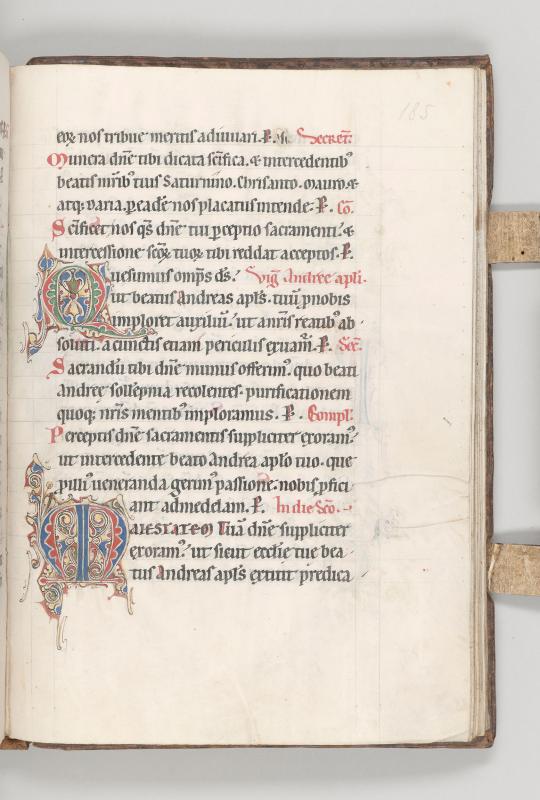 185
eoꝝ nos tribue meritis adiuuari. P. Secret̄.
Munera dn̄e tibi dicata sc̄ifica. & intercedentib;
beatis mr̄ib; tuis Saturnino. Chrisanto. mauro. &
atq; daria. ꝑ eadē nos placatus intende. P. Cō.
Sc̄ificet nos qs̄ dn̄e tui ꝑceptio sacramenti. &
intercessione sc̄oꝝ tuoꝝ tibi reddat acceptos. P.
Quesumus omp̄s ds̄. Vig̃ Andree apl̄i.
ut beatus Andreas apl̄s. tuū ꝓ nobis
imploret auxiliū. ut a nr̄is reatib; ab
soluti. a cunctis etiam periculis exuam̄. P. Sēc.
Sacrandū tibi dn̄e munus offerim̄. quo beati
andree sollēpnia recolentes. purificationem
quoq; nr̄is mentib; imploramus. P. Compl̄.
Perceptis dn̄e sacramentis suppliciter exoram̄.
ut intercedente beato Andrea apl̄o tuo. que
ꝓ illi' ueneranda gerim̄ passione. nobis ꝓfici
ant ad medelam. P. In die Sc̄o.
MAIESTATEM Tuā dn̄e suppliciter
exoram̄. ut sicut eccl̄ie tue bea
tus Andreas apl̄s extitit predica